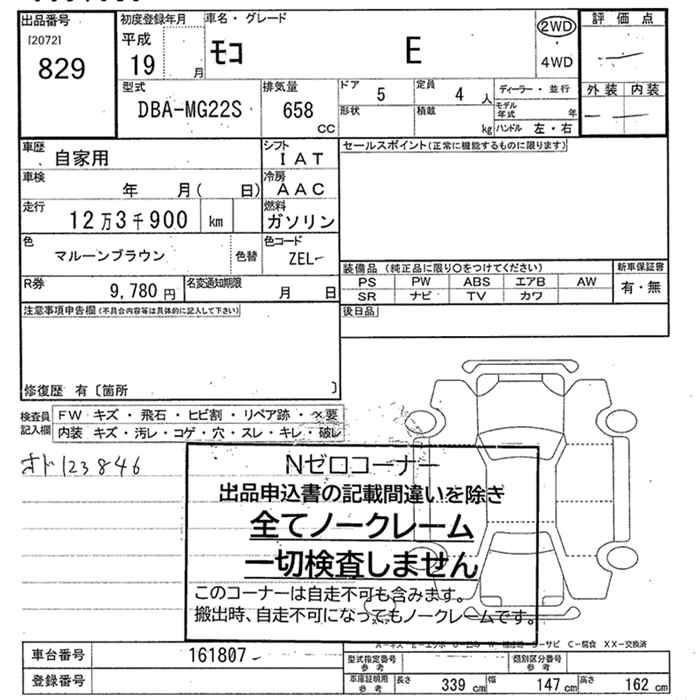 出品番号 初度登録年月 車名・グレード 評価点
[2072] 829
平成 19 月 モコ E 2WD ・ 4WD
外装 内装
型式 排気量 ドア 5 定員 4 人 ディーラー・並行
DBA-MG22S 658 cc 形状 積載 kg モデル年式 年
ハンドル 左・右
車歴 自家用 シフト IAT セールスポイント(正常に機能するものに限ります)
車検 年 月( 日) 冷房 AAC
走行 12万3千900 km 燃料 ガソリン
色 マルーンブラウン 色替 色コード ZEL-
装備品 (純正品に限り○をつけてください) 新車保証書
R券 9,780円 名変通知期限 月 日
PS PW ABS エアB AW 有・無
SR ナビ TV カワ
注意事項申告欄(不具合内容等は具体的に記入して下さい) 後日品
修復歴 有〔箇所 〕
検査員記入欄 FW キズ・飛石・ヒビ割・リペア跡・×要
内装 キズ・汚レ・コゲ・穴・スレ・キレ・破レ
オド123846
Nゼロコーナー
出品申込書の記載間違いを除き
全てノークレーム
一切検査しません
このコーナーは自走不可も含みます。
搬出時、自走不可になってもノークレームです。
C-腐食 XX-交換済
車台番号 161807- 型式指定番号参考 類別区分番号参考
登録番号 車庫証明用参考 長さ 339cm 幅 147cm 高さ 162cm